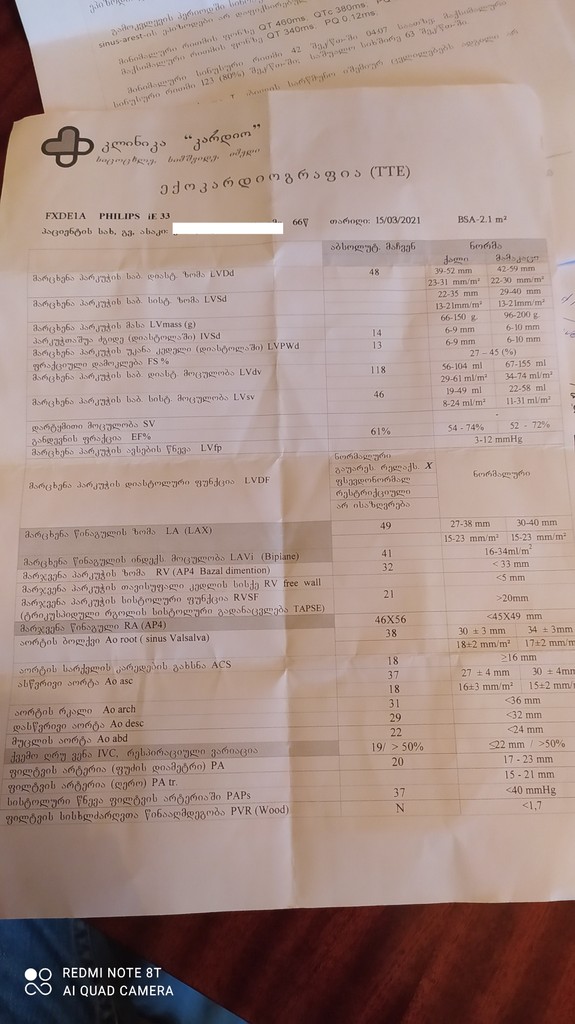 sinus-arest-ის
მინიმალური რითმის ფონზე QT 460ms. QTc 380ms.
მაქსიმალური რითმის ფონზე QT 340ms. PQ 0.12ms.
მინიმალური სინუსური რითმი 42 შეკუმშვა 04:07 საათზე. მაქსიმალური
სინუსური რითმი 123 (80%) შეკუმშვა. საშუალო სიხშირე 63 შეკუმშვა.
კლინიკა “კარდიო”
სიცოცხლე, სიმშვიდე, იმედი
ექოკარდიოგრაფია (TTE)
FXDE1A PHILIPS iE 33
პაციენტის სახ. გვ. ასაკი: 66წ თარიღი: 15/03/2021 BSA-2.1 m²
აბსოლუტ. მაჩვენ ნორმა
ქალი მამაკაცი
მარცხენა პარკუჭის საბ. დიასტ. ზომა LVDd 48 39-52 mm 42-59 mm
23-31 mm/m² 22-30 mm/m²
მარცხენა პარკუჭის საბ. სისტ. ზომა LVSd 22-35 mm 29-40 mm
13-21mm/m² 13-21mm/m²
მარცხენა პარკუჭის მასა LVmass (g) 66-150 g. 96-200 g.
პარკუჭთაშუა ძგიდე (დიასტოლაში) IVSd 14 6-9 mm 6-10 mm
მარცხენა პარკუჭის უკანა კედელი (დიასტოლაში) LVPWd 13 6-9 mm 6-10 mm
ფრაქციული დამოკლება FS % 27 – 45 (%)
მარცხენა პარკუჭის საბ. დიასტ. მოცულობა LVdv 118 56-104 ml 67-155 ml
29-61 ml/m² 34-74 ml/m²
მარცხენა პარკუჭის საბ. სისტ. მოცულობა LVsv 46 19-49 ml 22-58 ml
8-24 ml/m² 11-31 ml/m²
დარტყმითი მოცულობა SV -
განდევნის ფრაქცია EF% 61% 54 - 74% 52 - 72%
მარცხენა პარკუჭის ავსების წნევა LVfp 3-12 mmHg
მარცხენა პარკუჭის დიასტოლური ფუნქცია LVDF
ნორმალური
გაუარეს. რელაქს. X
ფსევდონორმალ
რესტრიქციული
არ ისაზღვრება
ნორმალური
მარცხენა წინაგულის ზომა LA (LAX) 49 27-38 mm 30-40 mm
15-23 mm/m² 15-23 mm/m²
მარცხენა წინაგულის ინდექს მოცულობა LAVi (Biplane) 41 16-34ml/m²
მარჯვენა პარკუჭის ზომა RV (AP4 Bazal dimention) 32 < 33 mm
მარჯვენა პარკუჭის თავისუფალი კედლის სისქე RV free wall <5 mm
მარჯვენა პარკუჭის სისტოლური ფუნქცია RVSF 21 >20mm
(ტრიკუსპიდული რგოლის სისტოლური გადანაცვლება TAPSE)
მარჯვენა წინაგული RA (AP4) 46X56 <45X49 mm
აორტის ბოლქვი Ao root ( sinus Valsalva) 38 30 ± 3 mm 34 ± 3mm
18±2 mm/m² 17±2 mm/m²
აორტის სარქვლის კარედების გახსნა ACS 18 ≥16 mm
ასწვრივი აორტა Ao asc 37 27 ± 4 mm 30 ± 4mm
18 16±3 mm/m² 15±2 mm/m²
აორტის რკალი Ao arch 31 <36 mm
დასწვრივი აორტა Ao desc 29 <32 mm
მუცლის აორტა Ao abd 22 <24 mm
ქვემო ღრუ ვენა IVC, რესპირაციული ვარიაცია 19/ > 50% ≤22 mm / >50%
ფილტვის არტერია (ფუძის დიამეტრი) PA 20 17 - 23 mm
ფილტვის არტერია (ღერო) PA tr. 15 - 21 mm
სისტოლური წნევა ფილტვის არტერიაში PAPs 37 <40 mmHg
ფილტვის სისხლძარღვთა წინააღმდეგობა PVR (Wood) N <1,7
REDMI NOTE 8T
AI QUAD CAMERA